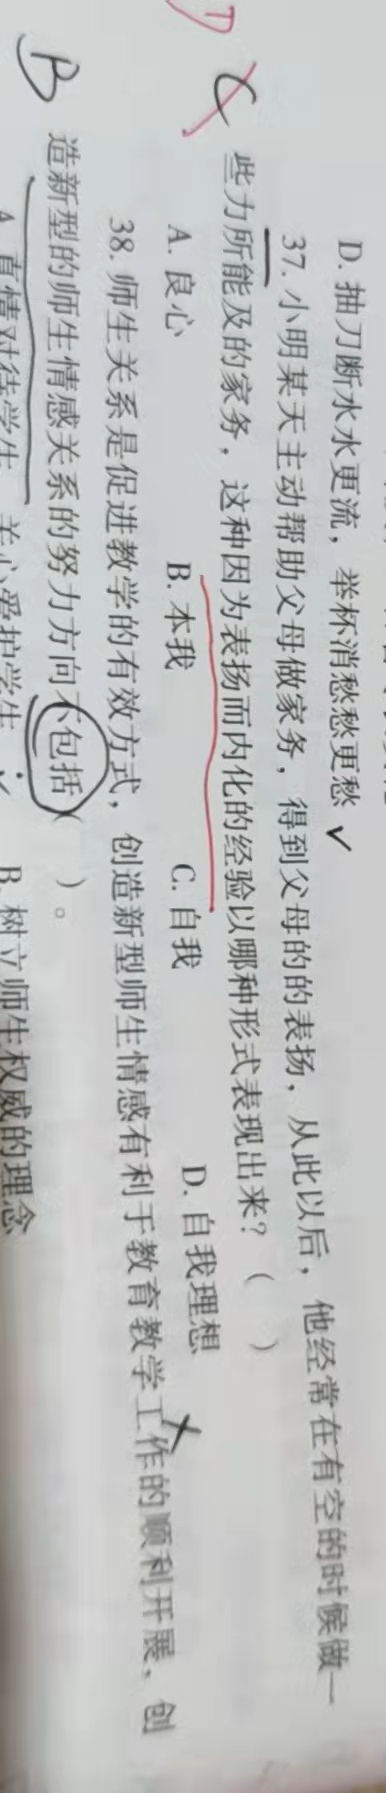 D. 抽刀断水水更流，举杯消愁愁更愁 ✓
37. 小明某天主动帮助父母做家务，得到父母的的表扬，从此以后，他经常在有空的时候做一
些力所能及的家务，这种因为表扬而内化的经验以哪种形式表现出来？（ ）
D C
A. 良心 B. 本我 C. 自我 D. 自我理想
38. 师生关系是促进教学的有效方式，创造新型师生情感有利于教育教学工作的顺利开展，创
造新型的师生情感关系的努力方向不包括（ ）。
B
A. 真情对待学生，关心爱护学生 ✓ B. 树立师生权威的理念